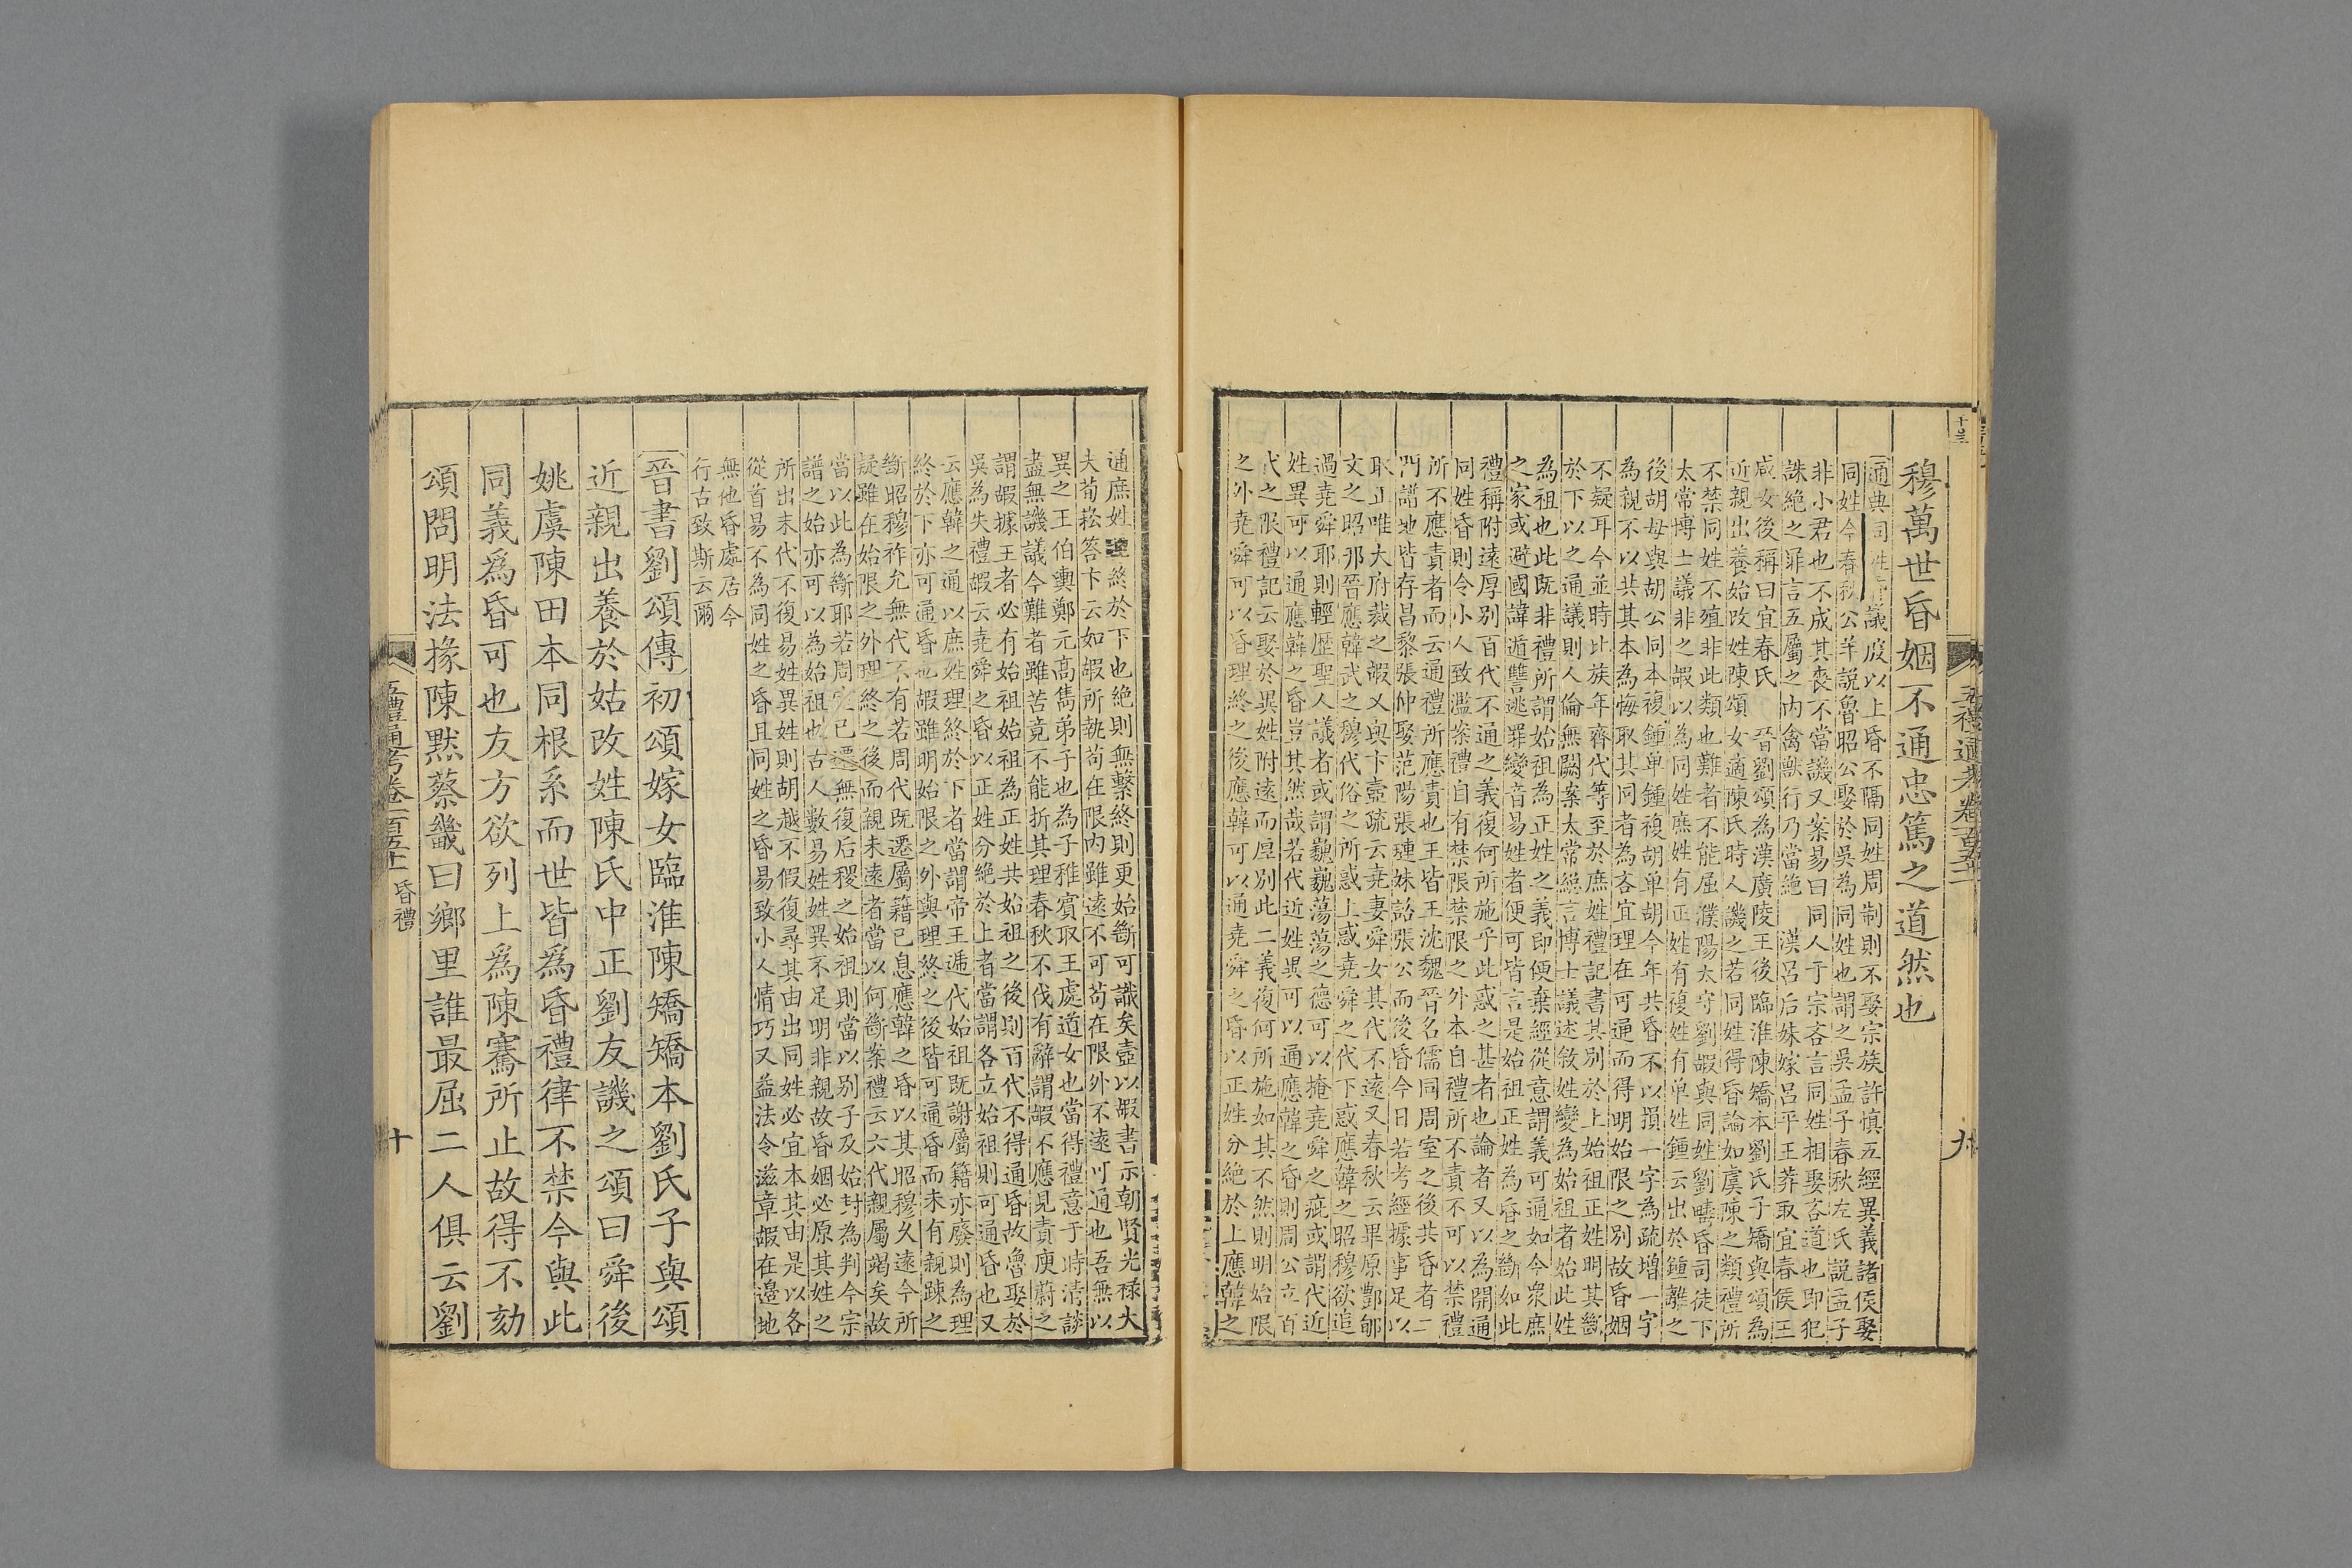 穆萬世昏姻不通忠篤之道然也
通典同姓昏議殷以上昏不隔同姓周制則不娶宗族許慎五經異義諸侯娶
同姓今春秋公羊説魯昭公娶於吳為同姓也謂之吳孟子春秋左氏説孟子
非小君也不成其喪不當譏又案易曰同人于宗吝言同姓相娶吝道也即犯
誅絕之罪言五屬之内禽獸行乃當絕　漢呂后妹嫁呂平王莽取宜春侯王
咸女後稱曰宜春氏　晉劉頌為漢廣陵王後臨淮陳矯本劉氏子矯與頌為
近親出養始改姓陳頌女適陳氏時人譏之若同姓得昏論如虞陳之類禮所
不禁同姓不殖非此類也難者不能屈濮陽太守劉嘏與同姓劉疇昏司徒下
太常博士議非之嘏以為同姓庶姓有正姓有複姓有单姓鍾云出於鍾離之
後胡毋與胡公同本複鍾单鍾複胡单胡今年共昏不以損一字為疏增一字
為親不以共其本為悔取其同者為吝宜理在可通而得明始限之別故昏姻
不疑耳今並時比族年齊代等至於庶姓禮記書其別於上始祖正姓明其斷
於下以之通議則人倫無闕案太常總言博士議述敘姓變為始祖者始此姓
為祖也此既非禮所謂始祖為正姓之義即便棄經從意謂義可通如今衆庶
之家或避國諱遁讐逃罪變音易姓者便可皆言是始祖正姓為昏之斷如此
禮稱附遠厚别百代不通之義復何所施乎此惑之甚者也論者又以為開通
同姓昏則令小人致濫案禮自有禁限禁限之外本自禮所不責不可以禁禮
所不應責者而云通禮所應責也王皆王沈魏晉名儒同周室之後共昏者二
門譜牒皆存昌黎張仲娶范陽張璉妹詒張公而後昏今日若考經據事足以
取正唯大府裁之嘏又與卞壼疏云堯妻舜女其代不遠又春秋云畢原酆郇
文之昭邘晉應韓武之穆代俗之所惑上惑堯舜之代下惑應韓之昭穆欲追
過堯舜耶則輕歷聖人議者或謂巍巍蕩蕩之德可以掩堯舜之疵或謂代近
姓異可以通應韓之昏豈其然哉若代近姓異可以通應韓之昏則周公立百
代之限禮記云娶於異姓附遠而厚別此二義復何所施如其不然則明始限
之外堯舜可以昏理終之後應韓可以通堯舜之昏以正姓分絕於上應韓之
通庶姓理終於下也絕則無繫終則更始斷可識矣壼以嘏書示朝賢光禄大
夫荀崧答卞云如嘏所執苟在限内雖遠不可苟在限外不遠可通也吾無以
異之王伯輿鄭元高雋弟子也為子稚賓取王處道女也當得禮意于時清談
盡無譏議今難者雖苦竟不能折其理春秋不伐有辭謂嘏不應見責庾蔚之
謂嘏據王者必有始祖始祖為正姓共始祖之後則百代不得通昏故魯娶於
吳為失禮嘏云堯舜之昏以正姓分絕於上者當謂各立始祖則可通昏也又
云應韓之通以庶姓理終於下者當謂帝王遞代始祖既謝屬籍亦廢則為理
終於下亦可通昏也嘏雖明始限之外與理終之後皆可通昏而未有親踈之
斷昭穆祚允無代不有若周代既遷屬籍已息應韓之昏以其昭穆久遠今所
疑雖在始限之外理終之後而親未遠者當以何斷案禮云六代親屬竭矣故
當以此為斷耶若周室已遷無復后稷之始祖則當以别子及始封為判今宗
譜之始亦可以為始祖也古人數易姓姓異不足明非親故昏姻必原其姓之
所出末代不復易姓異姓則胡越不假復尋其由出同姓必宜本其由是以各
從首易不為同姓之昏且同姓之昏易致小人情巧又益法令滋章嘏在邉地
無他昏處居今
行古致斯云爾
晉書劉頌傳初頌嫁女臨淮陳矯矯本劉氏子與頌
近親出養於姑改姓陳氏中正劉友譏之頌曰舜後
姚虞陳田本同根系而世皆爲昏禮律不禁今與此
同義爲昏可也友方欲列上爲陳騫所止故得不劾
頌問明法掾陳默蔡畿曰鄉里誰最屈二人俱云劉
五禮通考卷一百五十二　昏禮　十